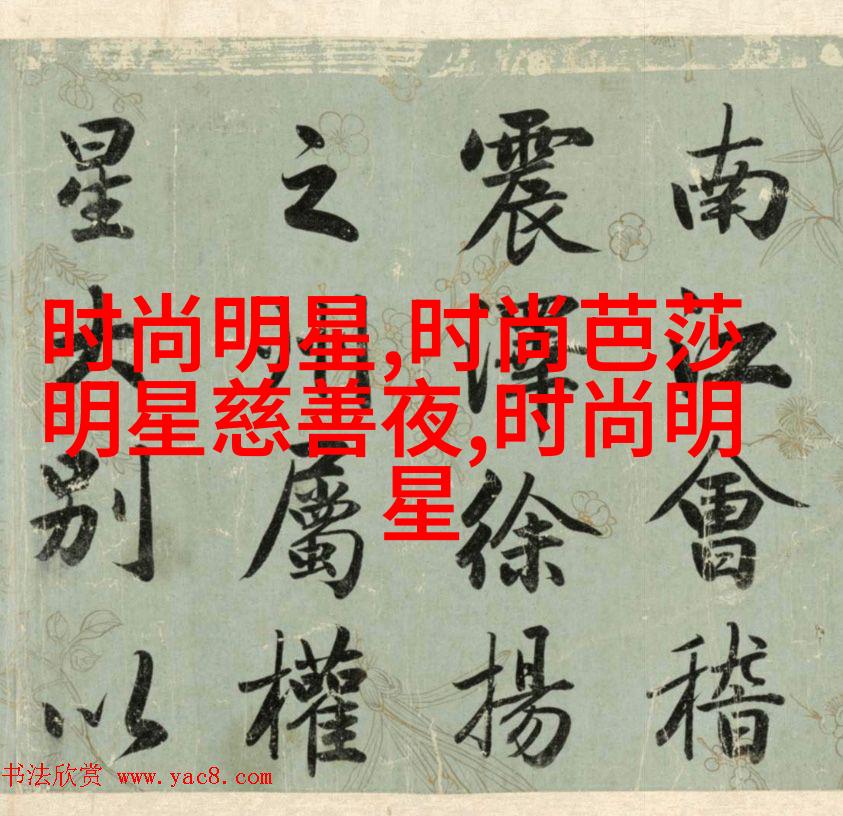 时尚明星,时尚芭莎
明星慈善夜,时尚明
星
南江會稽
震澤徐揚
之屬權
星別以
书法欣赏 www.yac8.com